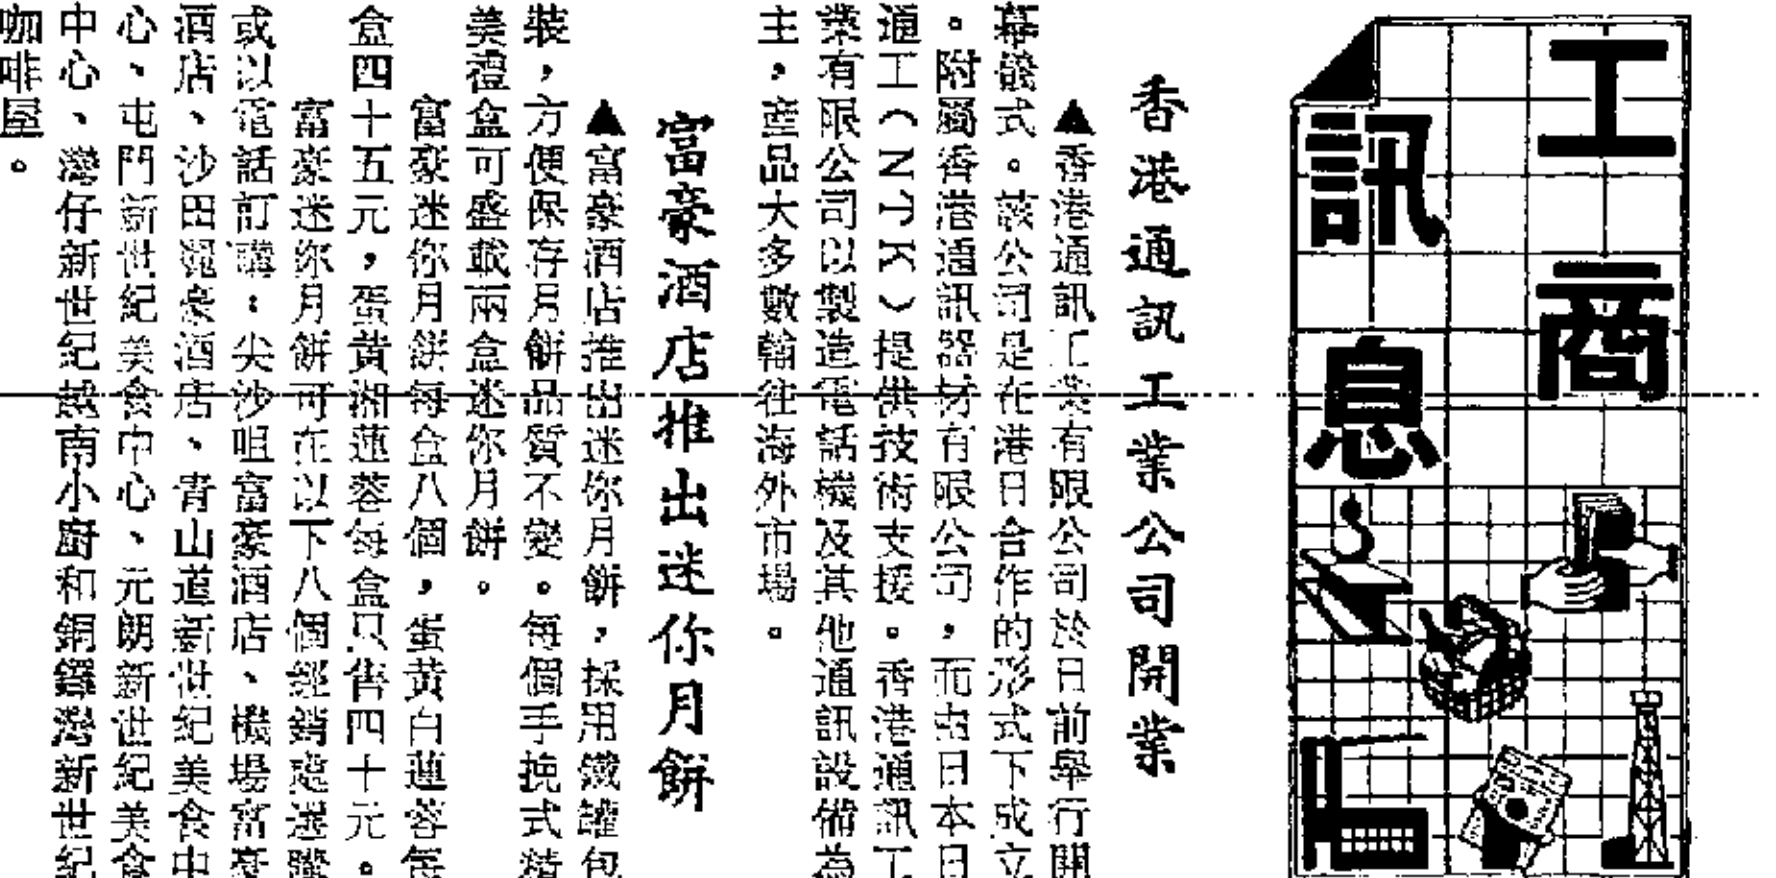 工商
訊息
香港通訊工業公司開業
▲香港通訊工業有限公司於日前舉行開
幕儀式。該公司是在港日合作的形式下成立
。附屬香港通訊器材有限公司,而由日本日
通工(NTK)提供技術支援。香港通訊工
業有限公司以製造電話機及其他通訊設備為
主,產品大多數輸往海外市場。
富豪酒店推出迷你月餅
▲富豪酒店推出迷你月餅,採用鐵罐包
裝,方便保存月餅品質不變。每個手挽式精
美禮盒可盛載兩盒迷你月餅。
富豪迷你月餅每盒八個,蛋黃白蓮蓉每
盒四十五元,蛋黃湘蓮蓉每盒只售四十元。
富豪迷你月餅可在以下八個經銷處選購
或以電話訂購:尖沙咀富豪酒店、機場富豪
酒店、沙田麗豪酒店、青山道新世紀美食中
心、屯門新世紀美食中心、元朗新世紀美食
中心、灣仔新世紀越南小廚和銅鑼灣新世紀
咖啡屋。